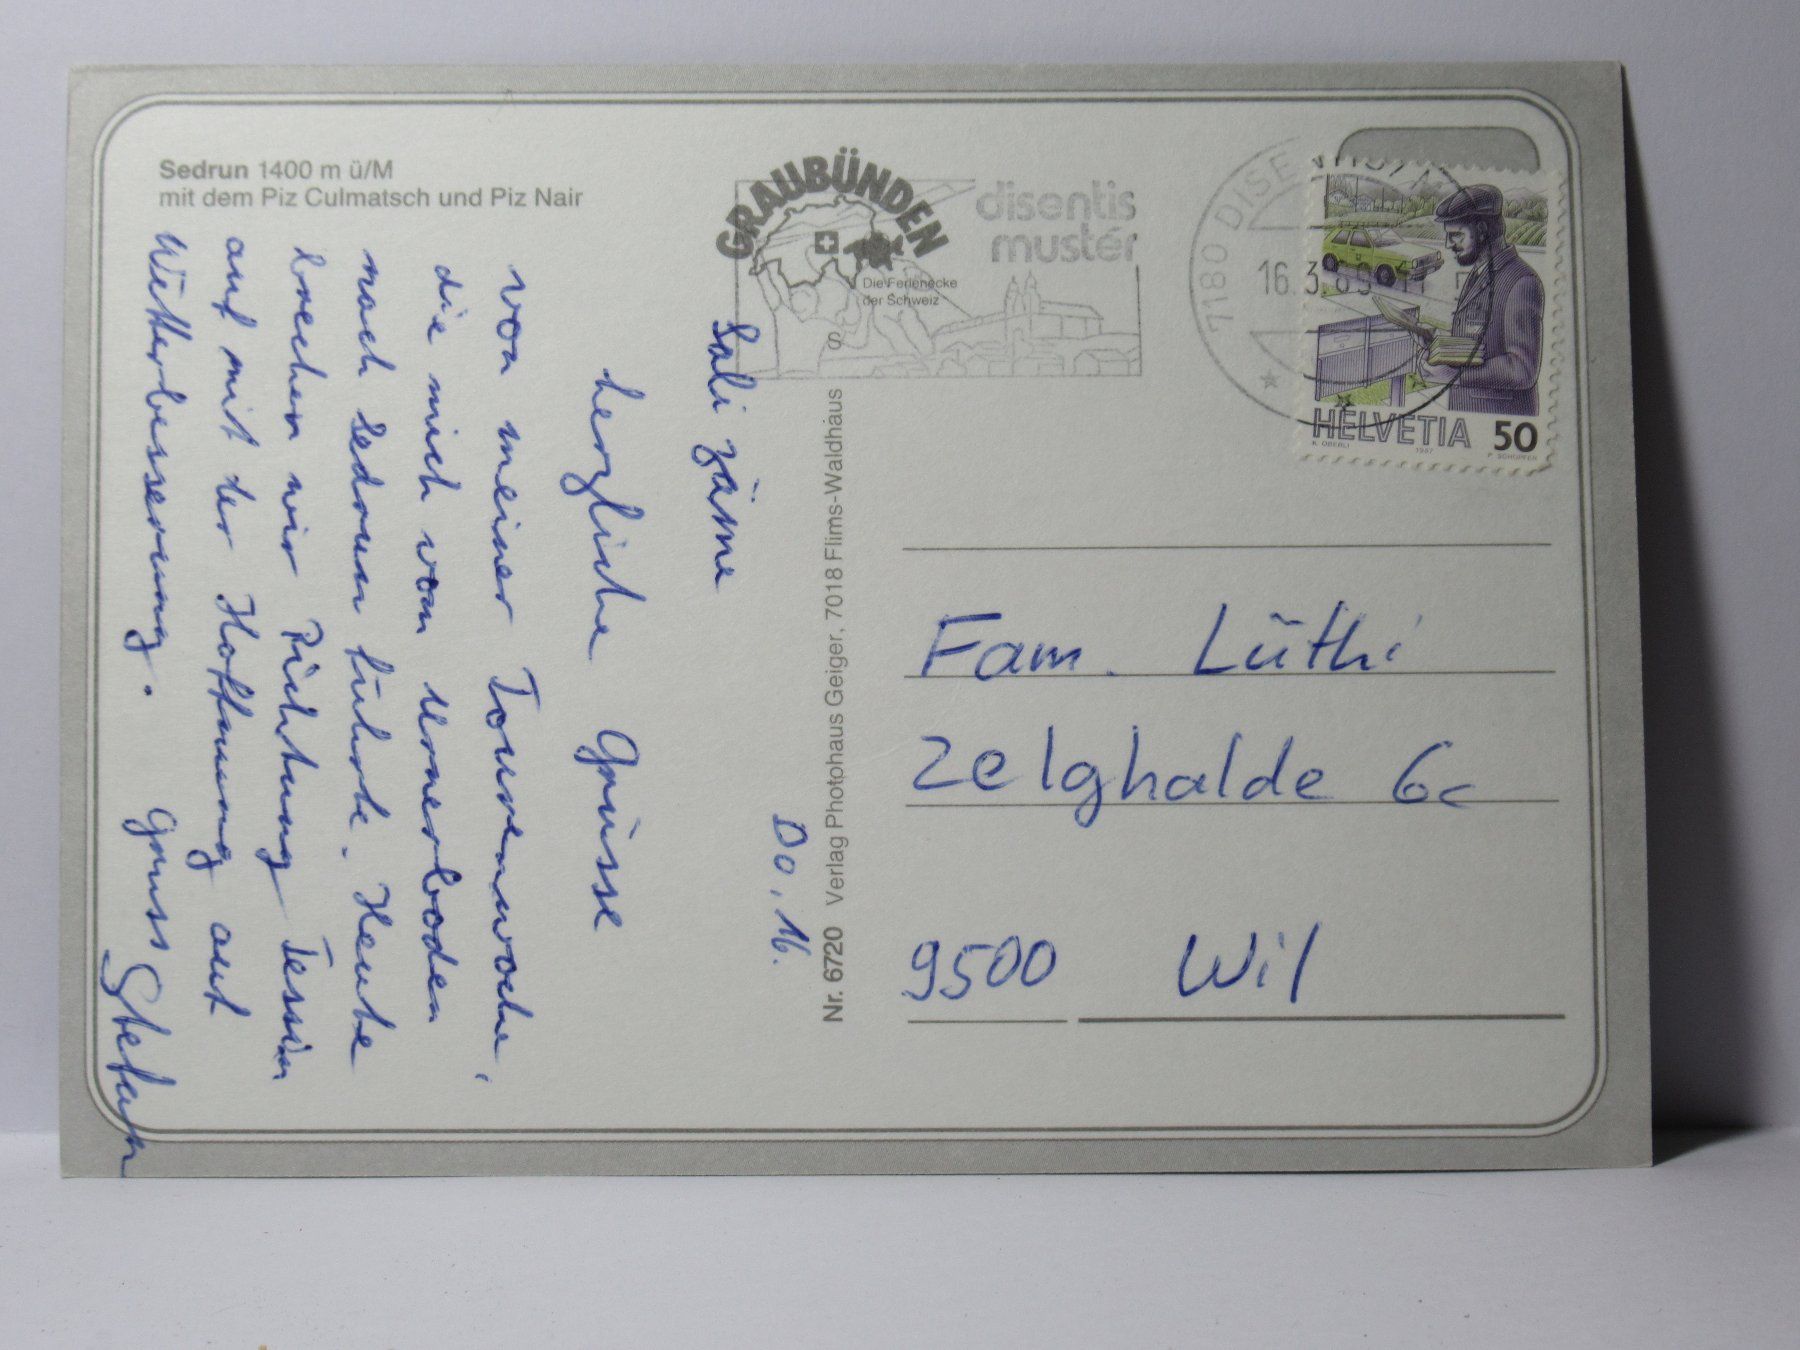 Sedrun 1400 m ü/M
mit dem Piz Culmatsch und Piz Nair
GRAUBÜNDEN
Die Ferienecke
der Schweiz
disentis
mustér
7180 DISENTIS/M
16.3.89
HELVETIA 50
K. OBERLI 1987 P. SCHOPFER
Do, 16.
Sali zäme
herzliche Grüsse
von meiner Tourenwoche,
die mich vom Urnerboden
nach Sedrun führte. Heute
brechen wir Richtung Tessin
auf mit der Hoffnung auf
Wetterbesserung. Gruss Stefan
Nr. 6720 Verlag Photohaus Geiger, 7018 Flims-Waldhaus
Fam. Lüthi
Zelghalde 6c
9500 Wil